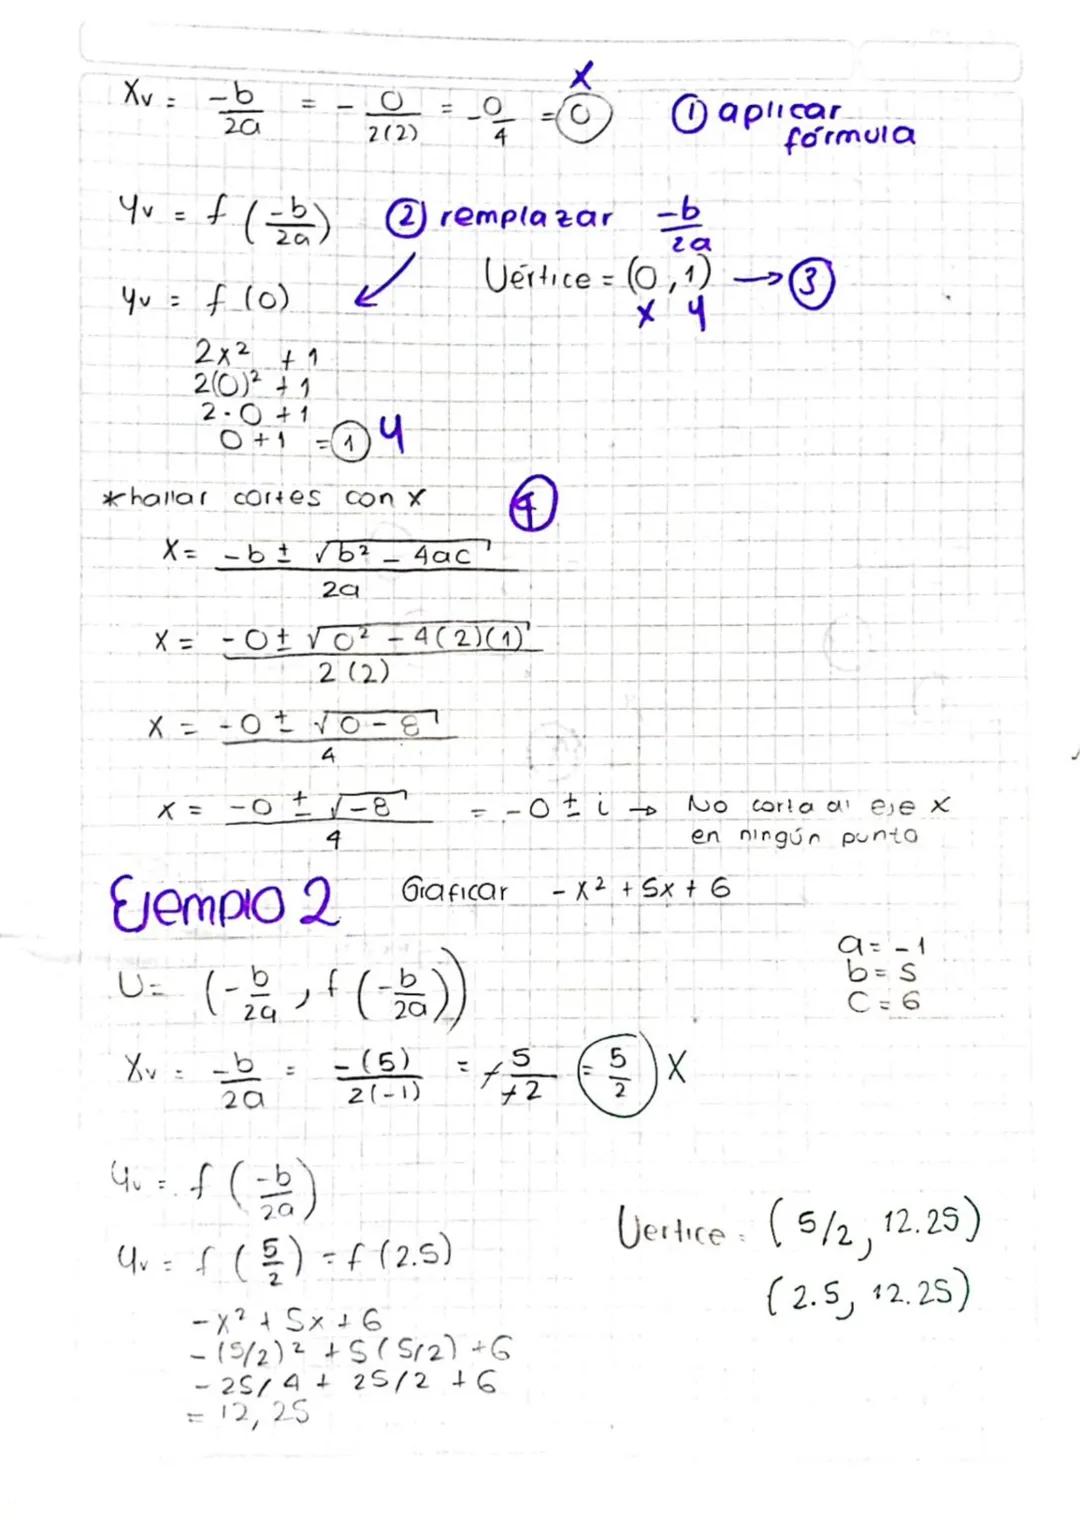 x
Xv = -b/2a = - 0/2(2) = -0/4 = 0 ① aplicar fórmula
yv = f (-b/2a) ② remplazar -b/2a
Vértice = (0,1) → ③
x y
yv = f (0)
2x² + 1
2(0)² + 1
2·0 + 1
0 + 1 = 1 y
*hallar cortes con x ④
x = -b ± √b² - 4ac / 2a
x = -0 ± √0² - 4(2)(1) / 2(2)
x = -0 ± √0-8 / 4
x = -0 ± √-8 / 4 = -0 ± i → No corta al eje x
en ningún punto
Ejemplo 2 Graficar -x² + 5x + 6
a = -1
b = 5
c = 6
V = (-b/2a, f(-b/2a))
Xv = -b/2a = -(5)/2(-1) = -5/-2 = 5/2 x
yv = f (-b/2a)
Vertice = (5/2, 12.25)
yv = f (5/2) = f (2.5)
(2.5, 12.25)
-x² + 5x + 6
-(5/2)² + 5(5/2) + 6
-25/4 + 25/2 + 6
= 12,25